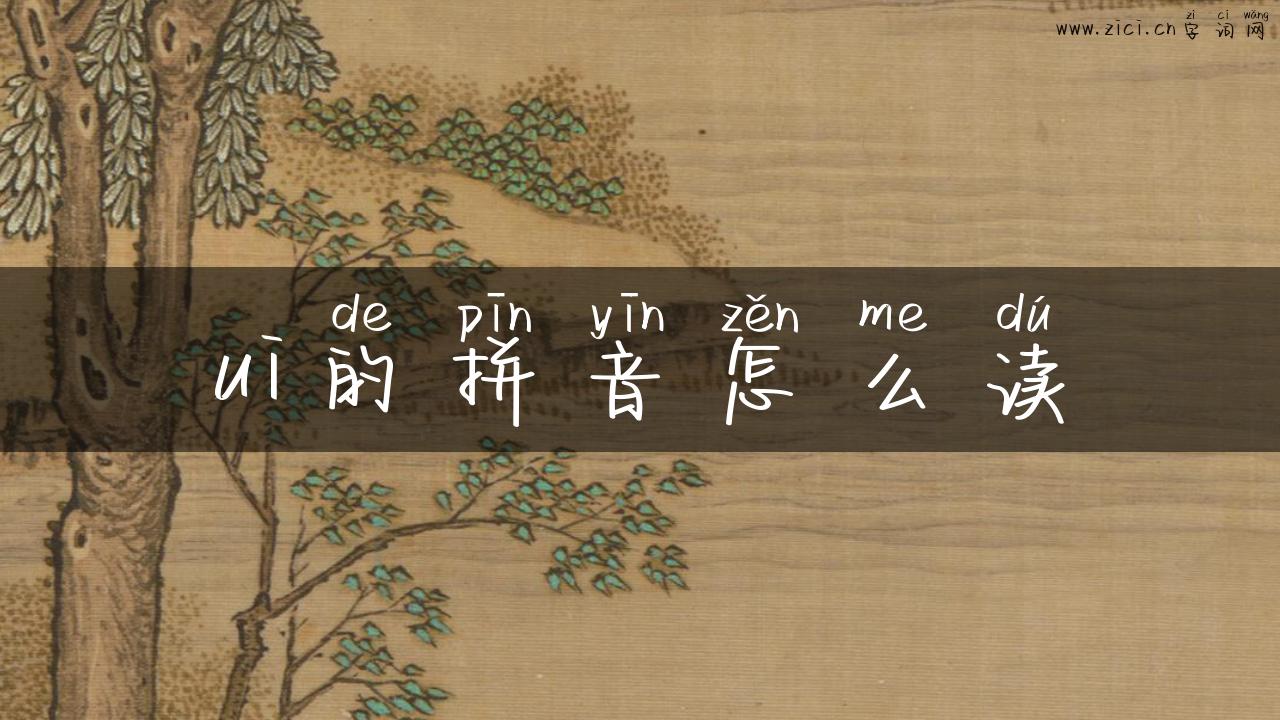 zì cí wǎng
www.zici.cn 字 词 网
de pīn yīn zěn me dú
ui 的 拼 音 怎 么 读